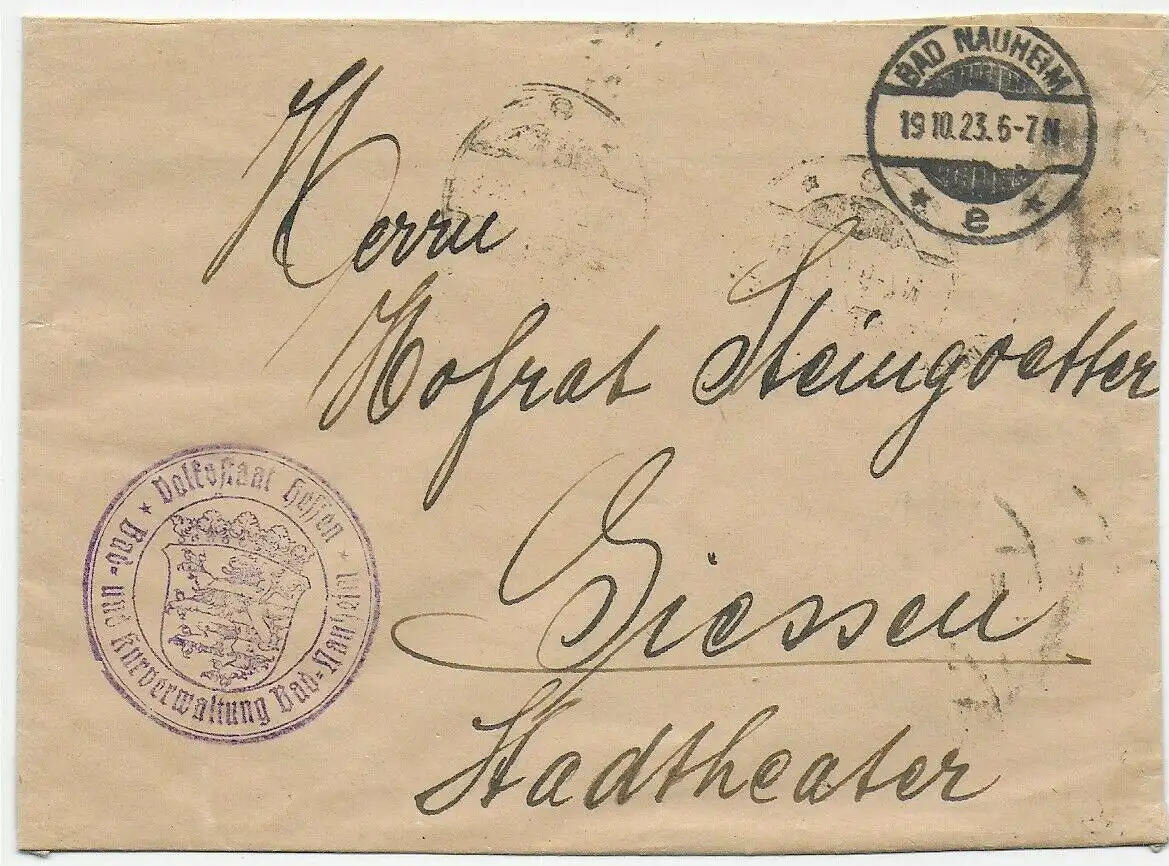 BAD NAUHEIM
19 10.23. 6-7 N
* e *
Herrn
Hofrat Steingoetter
Giessen
Stadtheater
* Volksstaat Hessen *
Bad- und Kurverwaltung Bad-Nauheim